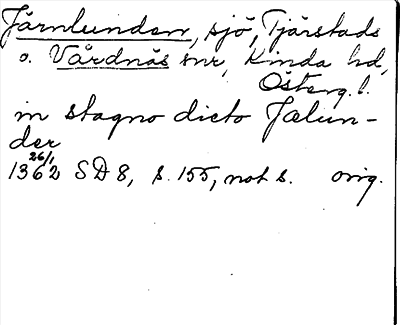 Järnlunden, sjö, Tjärstads
o. Vårdnäs snr, Kinda hd,
Österg. l.
in stagno dicto Jælun-
der
26/1
1362 SD 8, s. 155, not s. orig.